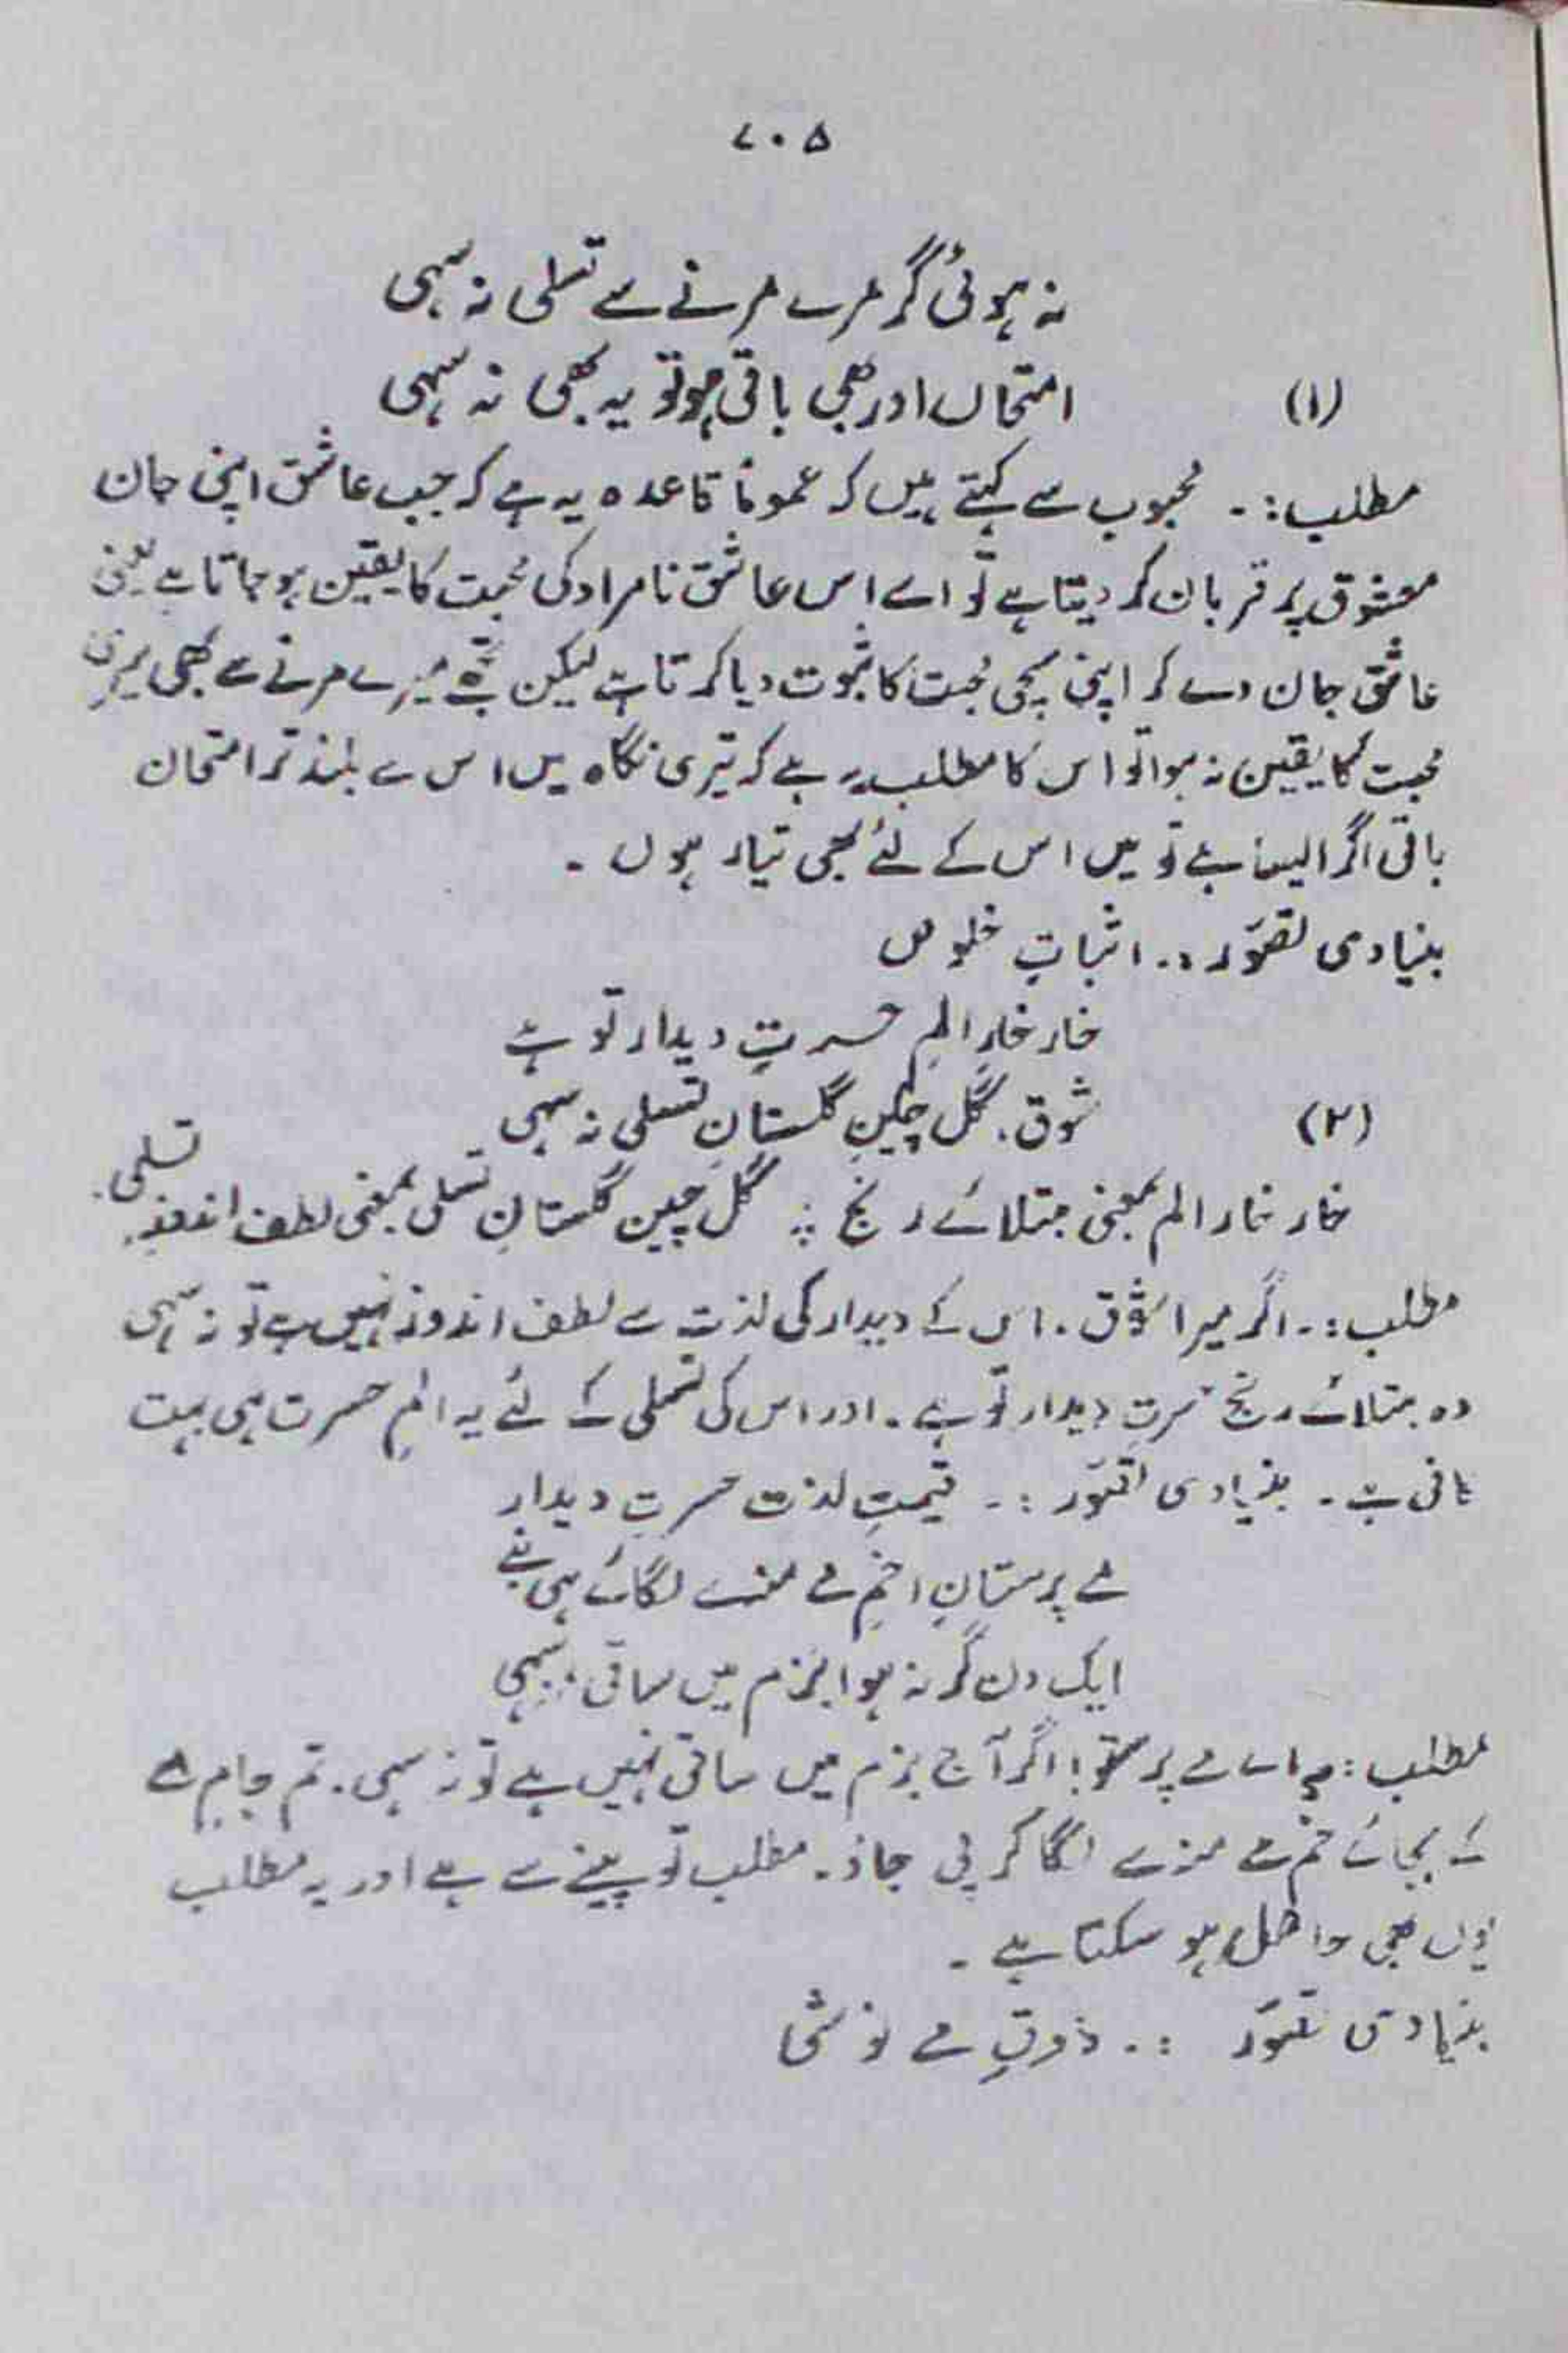 ۷۰۵
نہ ہوئی گر مرے مرنے سے تسلی نہ سہی
(۱) امتحاں اور بھی باقی ہو تو یہ بھی نہ سہی
مطلب :۔ محبوب سے کہتے ہیں کہ عموماً قاعدہ یہ ہے کہ جب عاشق اپنی جان
معشوق پر قربان کر دیتا ہے تو اسے اس عاشق نامراد کی محبت کا یقین ہو جاتا ہے یعنی
عاشق جان دے کر اپنی سچی محبت کا ثبوت دیا کرتا ہے لیکن تجھے میرے مرنے سے بھی میری
محبت کا یقین نہ ہوا تو اس کا مطلب یہ ہے کہ تیری نگاہ میں اس سے بلند تر امتحان
باقی اگر ایسا ہے تو میں اس کے لئے بھی تیار ہوں ۔
بنیادی تصوّر :۔ اثباتِ خلوص
خار خارِ المِ حسرتِ دیدار تو ہے
(۲) شوق، گل چینِ گلستانِ تسلی نہ سہی
خار خار الم بمعنی مبتلائے رنج ؛ گل چین گلستانِ تسلی بمعنی لطف اندوزِ تسلی۔
مطلب :۔ اگر میرا شوق ۔ اس کے دیدار کی لذت سے لطف اندوز نہیں ہے تو نہ سہی
وہ مبتلائے رنج حسرتِ دیدار تو ہے ۔ اور اس کی تسلی کے لئے یہ المِ حسرت ہی بہت
کافی ہے ۔ بنیادی تصوّر :۔ قیمتِ لذت حسرتِ دیدار
مے پرستاں خمِ مے منہ سے لگائے ہی بنے
ایک دن گر نہ ہوا بزم میں ساقی نہ سہی
مطلب :۔ اے مے پرستو! اگر آج بزم میں ساقی نہیں ہے تو نہ سہی۔ تم جامِ مے
کے بجائے خم مے منہ سے لگا کر پی جاؤ ۔ مطلب تو پینے سے ہے اور یہ مطلب
یوں بھی حاصل ہو سکتا ہے ۔
بنیادی تصوّر :۔ ذوقِ مے نوشی